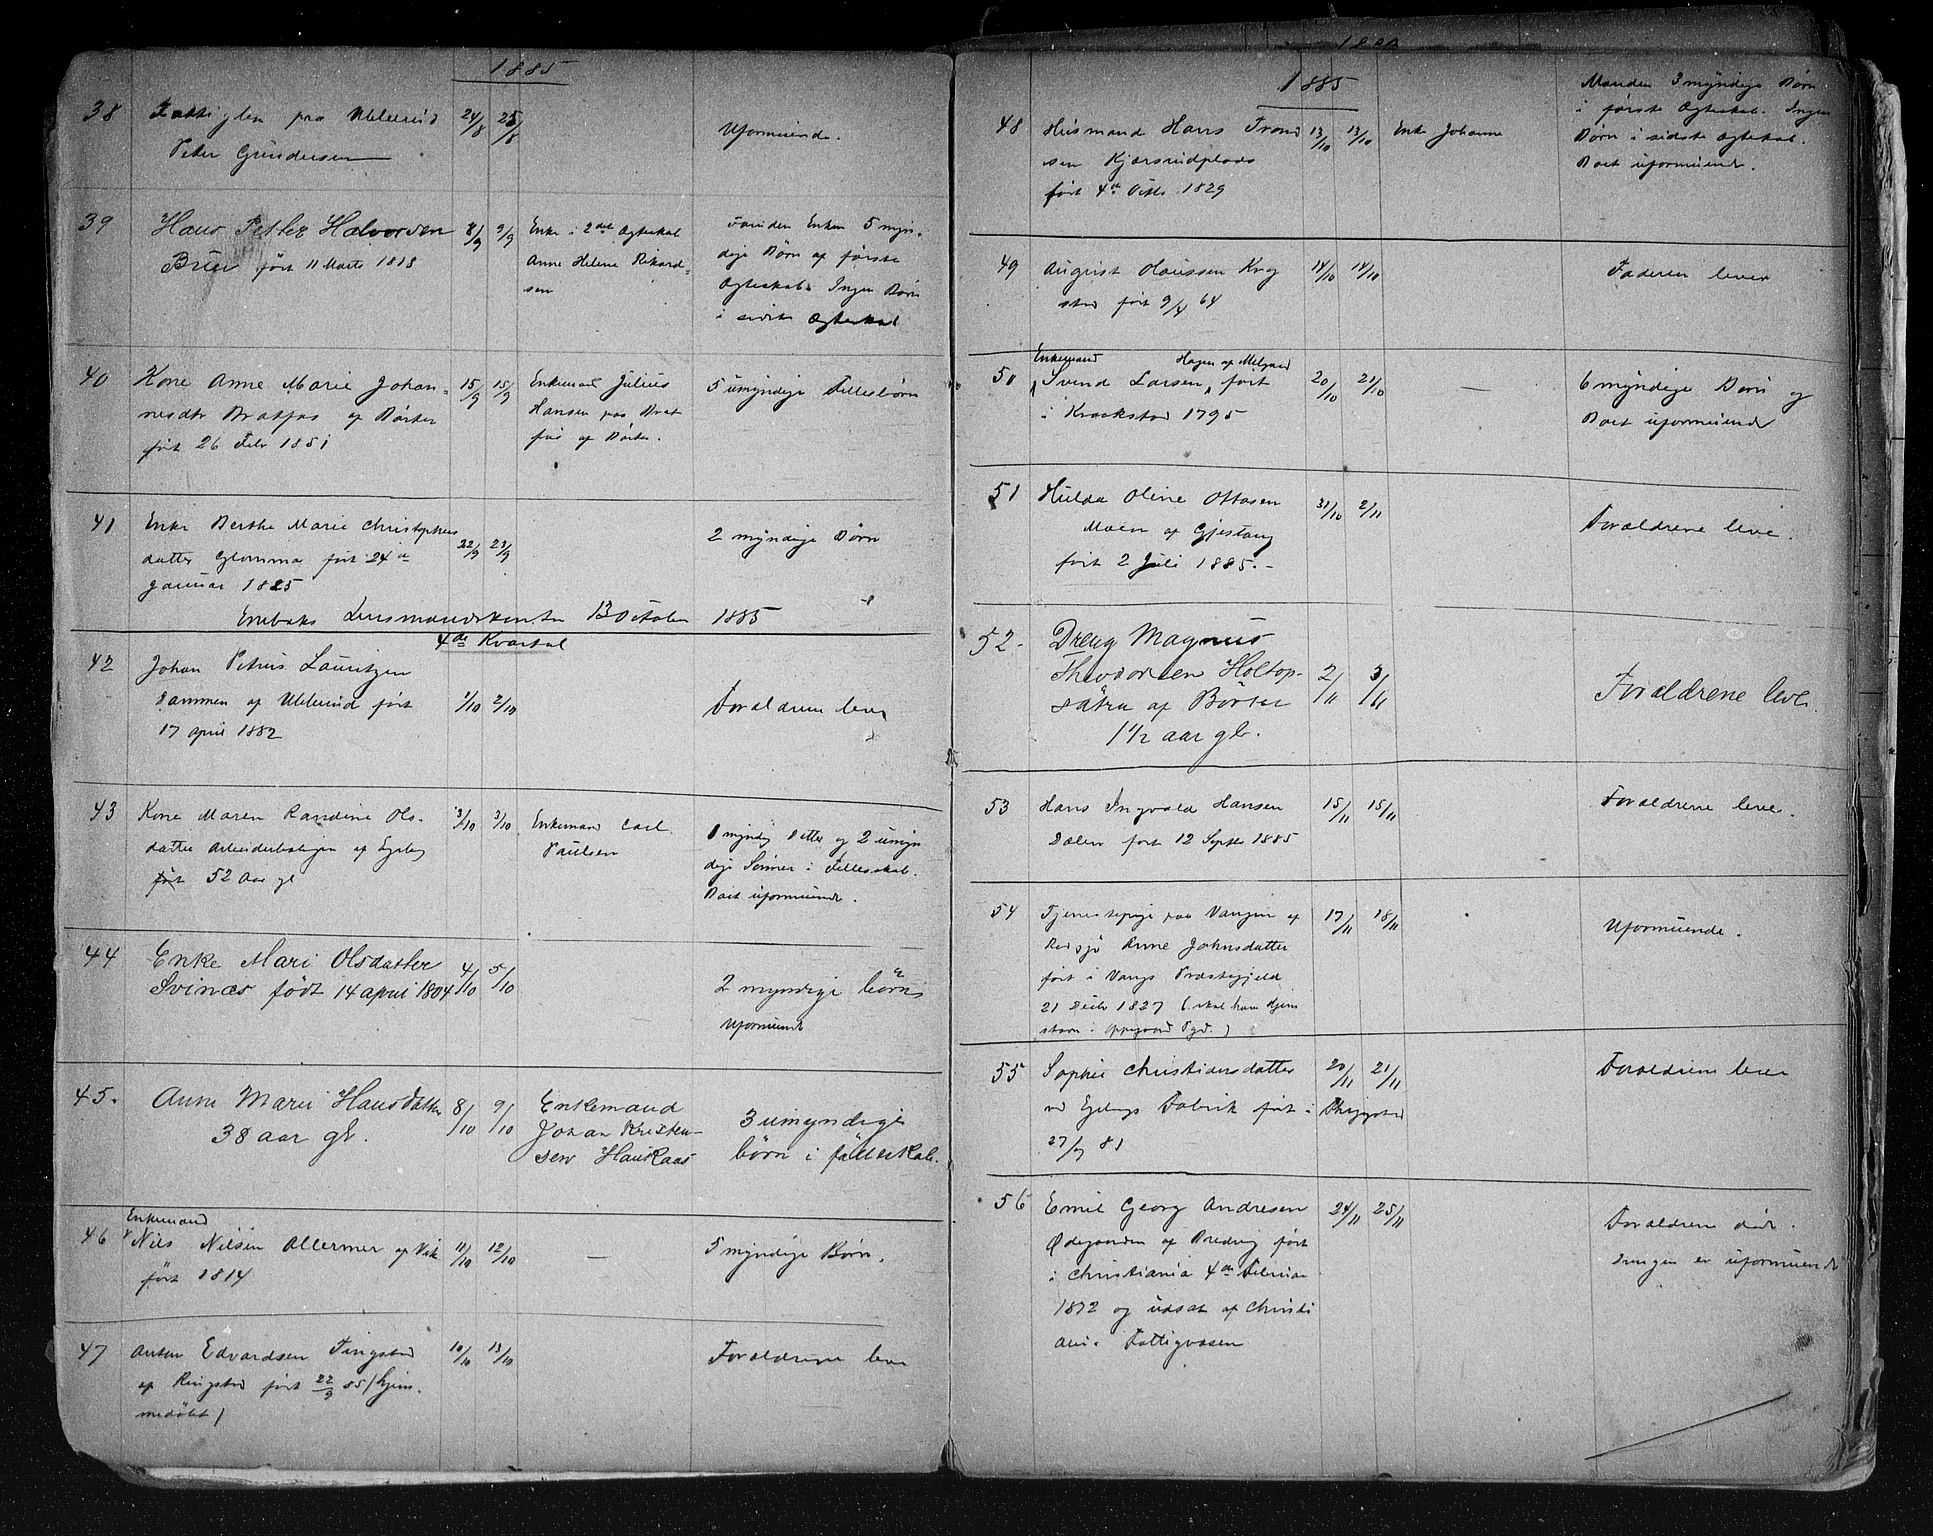 1885
38 Fattiglem paa Ublerud 24/8 25/8 Uformuende.
Peter Gundersen
39 Hans Petter Halvorsen 8/9 9/9 Enke i 2det Ægteskab Foruden Enken 5 myn-
Brua født 11 Marts 1818 Anne Helene Rikard- dige Børn af første
sen Ægteskab. Ingen Børn
i sidste Ægteskab
40 Kone Anne Marie Johan- 15/9 15/9 Enkemand Julius 5 umyndige Fællesbørn
nesdtr Bratfos af Børter Hansen paa Brat
født 26 Febr 1851 fos af Børter.
41 Enke Berthe Marie Christophers 22/9 23/9 2 myndige Børn
datter Glomma født 24de
Januar 1825
Enebaks Lensmandskontor 13 October 1885
4de Kvartal
42 Johan Petrus Lauritzen
Dammen af Ublerud født 1/10 2/10 Forældrene lever
17 april 1882
43 Kone Maren Randine Ols- 3/10 3/10 Enkemand Carl 1 myndig Datter og 2 umyn
datter Arbeiderboligen af Egeberg Paulsen dige Sønner i Fællesskab.
født 52 Aar gl Boet uformuende.
44 Enke Mari Olsdatter 4/10 5/10
Svinæs født 14 april 1804 2 myndige børn
uformuende
45. Anne Marie Hansdatter 8/10 9/10 Enkemand 3 umyndige
38 aar gl. Johan Kristen- børn i fælleskab.
sen Hauskaas
Enkemand
46 Nils Nilsen Ollermer af Vik 11/10 12/10 — 5 myndige Børn.
født 1814
47 Anton Edvardsen Tingstad 10/10 13/10 Forældrene leve
af Ringstad født 22/9 85 (hjem-
medøbt)
1885
48 Husmand Hans Trond 13/10 13/10 Enke Johanne Manden 3 myndige Børn
sen Kjærsrudplads i første Ægteskab. Ingen
født 4de Octb 1829 Børn i sidste Ægteskab.
Boet uformuende.
49 August Clausen Krog 14/10 14/10 Faderen lever
stad født 9/4 64
Enkemand Hagen af Melgaard
50 Svend Larsen, født 20/10 21/10 — 6 myndige Børn og
i Kraakstad 1795 Boet uformuende
51 Hulda Oline Ottosen 31/10 2/11 Forældrene leve.
Moen af Gjestang
født 2 Juli 1885.-
52. Dreng Magnus
Theodorsen Holtop- 2/11 3/11 Forældrene leve.
sætra af Børter
1 1/2 aar gl.
53 Hans Ingvald Hansen 15/11 15/11 Forældrene leve.
Dalen født 12 Septbr 1885
54 Tjenestepige paa Vangen af 17/11 18/11 Uformuende.
Rausjø Anne Johnsdatter
født i Vangs Præstegjeld
21 Decbr 1827 (skal have Hjem
stavn i Oppegaard Pgd.)
55 Sophie Christiansdatter 20/11 21/11 Forældrene lever
ved Egebergs Fabrik født i Skiptvedt
27/9 81
56 Emil Georg Andresen 24/11 25/11 Forældrene død.
Ødegaarden af Bredvig født Drengen er uformuende
i Christiania 4de Februar
1872 og udsat af Christi
ania Fattigvæsen